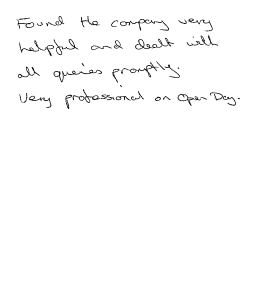 Found the company very
helpful and dealt with
all queries promptly.
Very professional on Open Day.